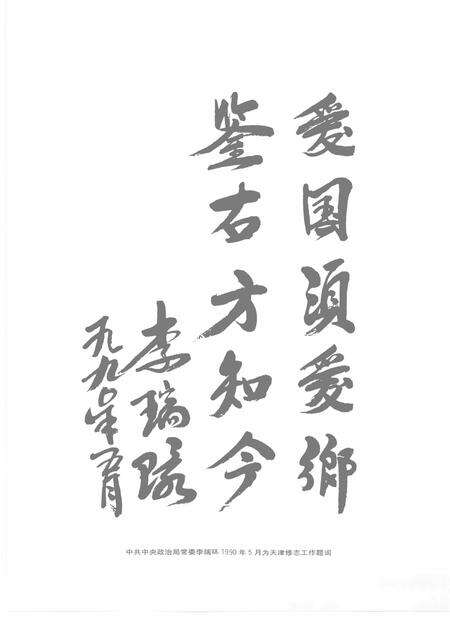 爱国须爱乡
鉴古方知今
李瑞环
一九九〇年五月
中共中央政治局常委李瑞环 1990 年 5 月为天津修志工作题词